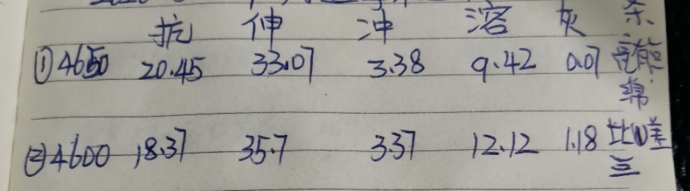 抗 伸 冲 溶 灰 杂
①4650 20.45 33.07 3.38 9.42 0.07
②4600 18.37 35.7 3.37 12.12 1.18 比①差